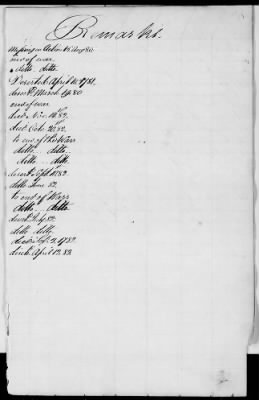 Remarks.
Missing in Action 16 Aug 80
end of war
ditto ditto
Deserted April 1781.
March 1780
end of war
died Nov. 82.
died Octo. 82.
to end of the War
ditto ditto
ditto ditto
desert Sept 1782
ditto June 82.
to end of Warr
ditto ditto
82
ditto ditto
died Sept. 2, 1782.
died April 12. 82.